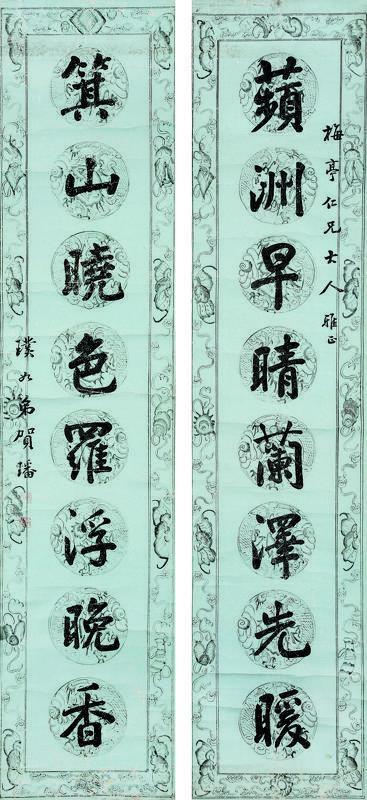 蘋洲早晴蘭澤先暖
梅亭仁兄士人雅正
箕山曉色羅浮晚香
璞如弟賀璠